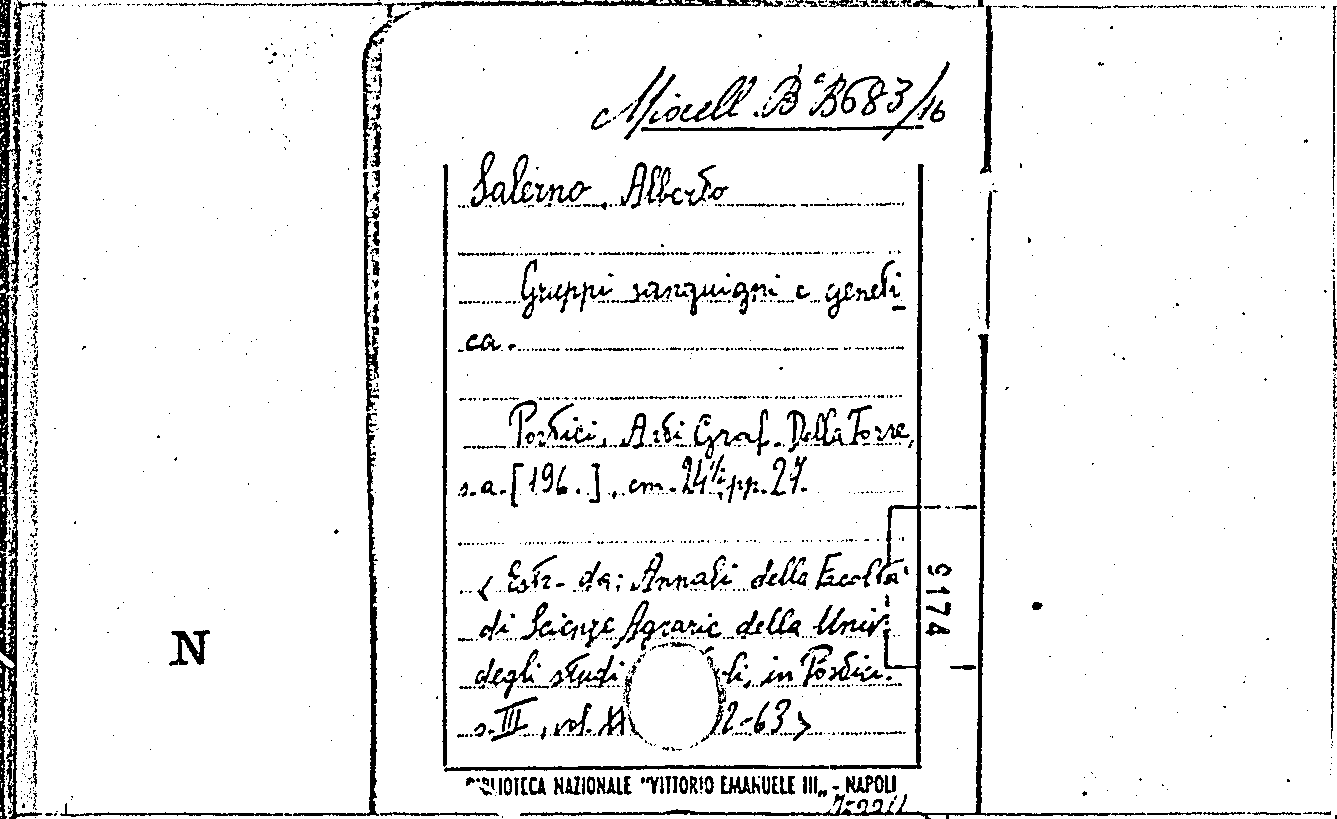 Miscell. B^a B683/16
Salerno, Alberto
Gruppi sanguigni e geneti
ca.
Portici, Arti Graf. Della Torre,
s.a. [196.], cm. 24½, pp. 27.
< Estr. da: Annali della Facoltà
di Scienze Agrarie della Univ.
degli studi li, in Portici.
s. III, vol. 2-63>
BIBLIOTECA NAZIONALE "VITTORIO EMANUELE III„ - NAPOLI
N
9174